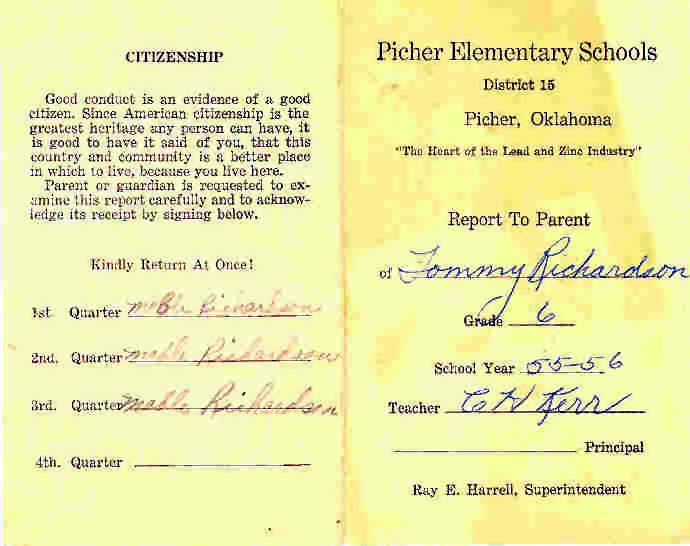 CITIZENSHIP
Good conduct is an evidence of a good
citizen. Since American citizenship is the
greatest heritage any person can have, it
is good to have it said of you, that this
country and community is a better place
in which to live, because you live here.
Parent or guardian is requested to ex-
amine this report carefully and to acknow-
ledge its receipt by signing below.
Kindly Return At Once!
1st. Quarter Mable Richardson
2nd. Quarter Mable Richardson
3rd. Quarter Mable Richardson
4th. Quarter
Picher Elementary Schools
District 15
Picher, Oklahoma
"The Heart of the Lead and Zinc Industry"
Report To Parent
of Tommy Richardson
Grade 6
School Year 55-56
Teacher C H Kerr
Principal
Ray E. Harrell, Superintendent